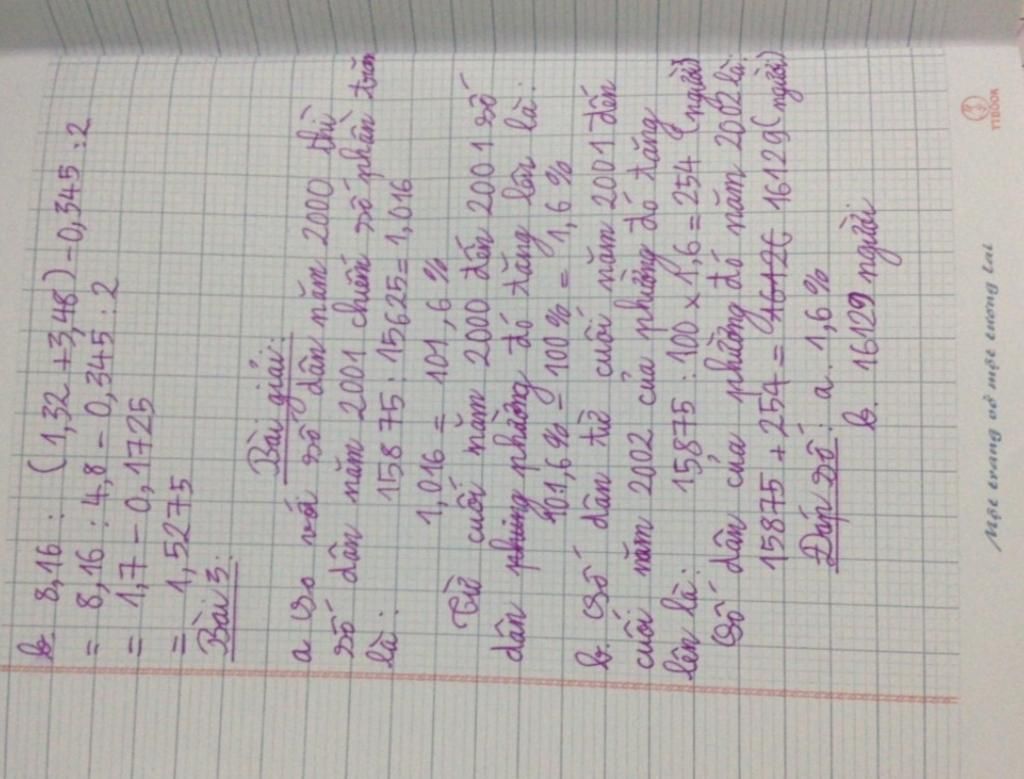 b 8,16 : (1,32 + 3,48) - 0,345 : 2
= 8,16 : 4,8 - 0,345 : 2
= 1,7 - 0,1725
= 1,5275
Bài 3:
Bài giải:
a So với số dân năm 2000 thì
số dân năm 2001 chiếm số phần trăm
là: 15875 : 15625 = 1,016
1,016 = 101,6 %
Từ cuối năm 2000 đến 2001 số
dân phường đó tăng lên là:
101,6 % - 100 % = 1,6 %
b. Số dân từ cuối năm 2001 đến
cuối năm 2002 của phường đó tăng
lên là: 15875 : 100 x 1,6 = 254 (người)
Số dân của phường đó năm 2002 là:
15875 + 254 = 16129 (người)
Đáp số: a. 1,6 %
b. 16129 người
Một trang vở một tương lai
TTBOOK